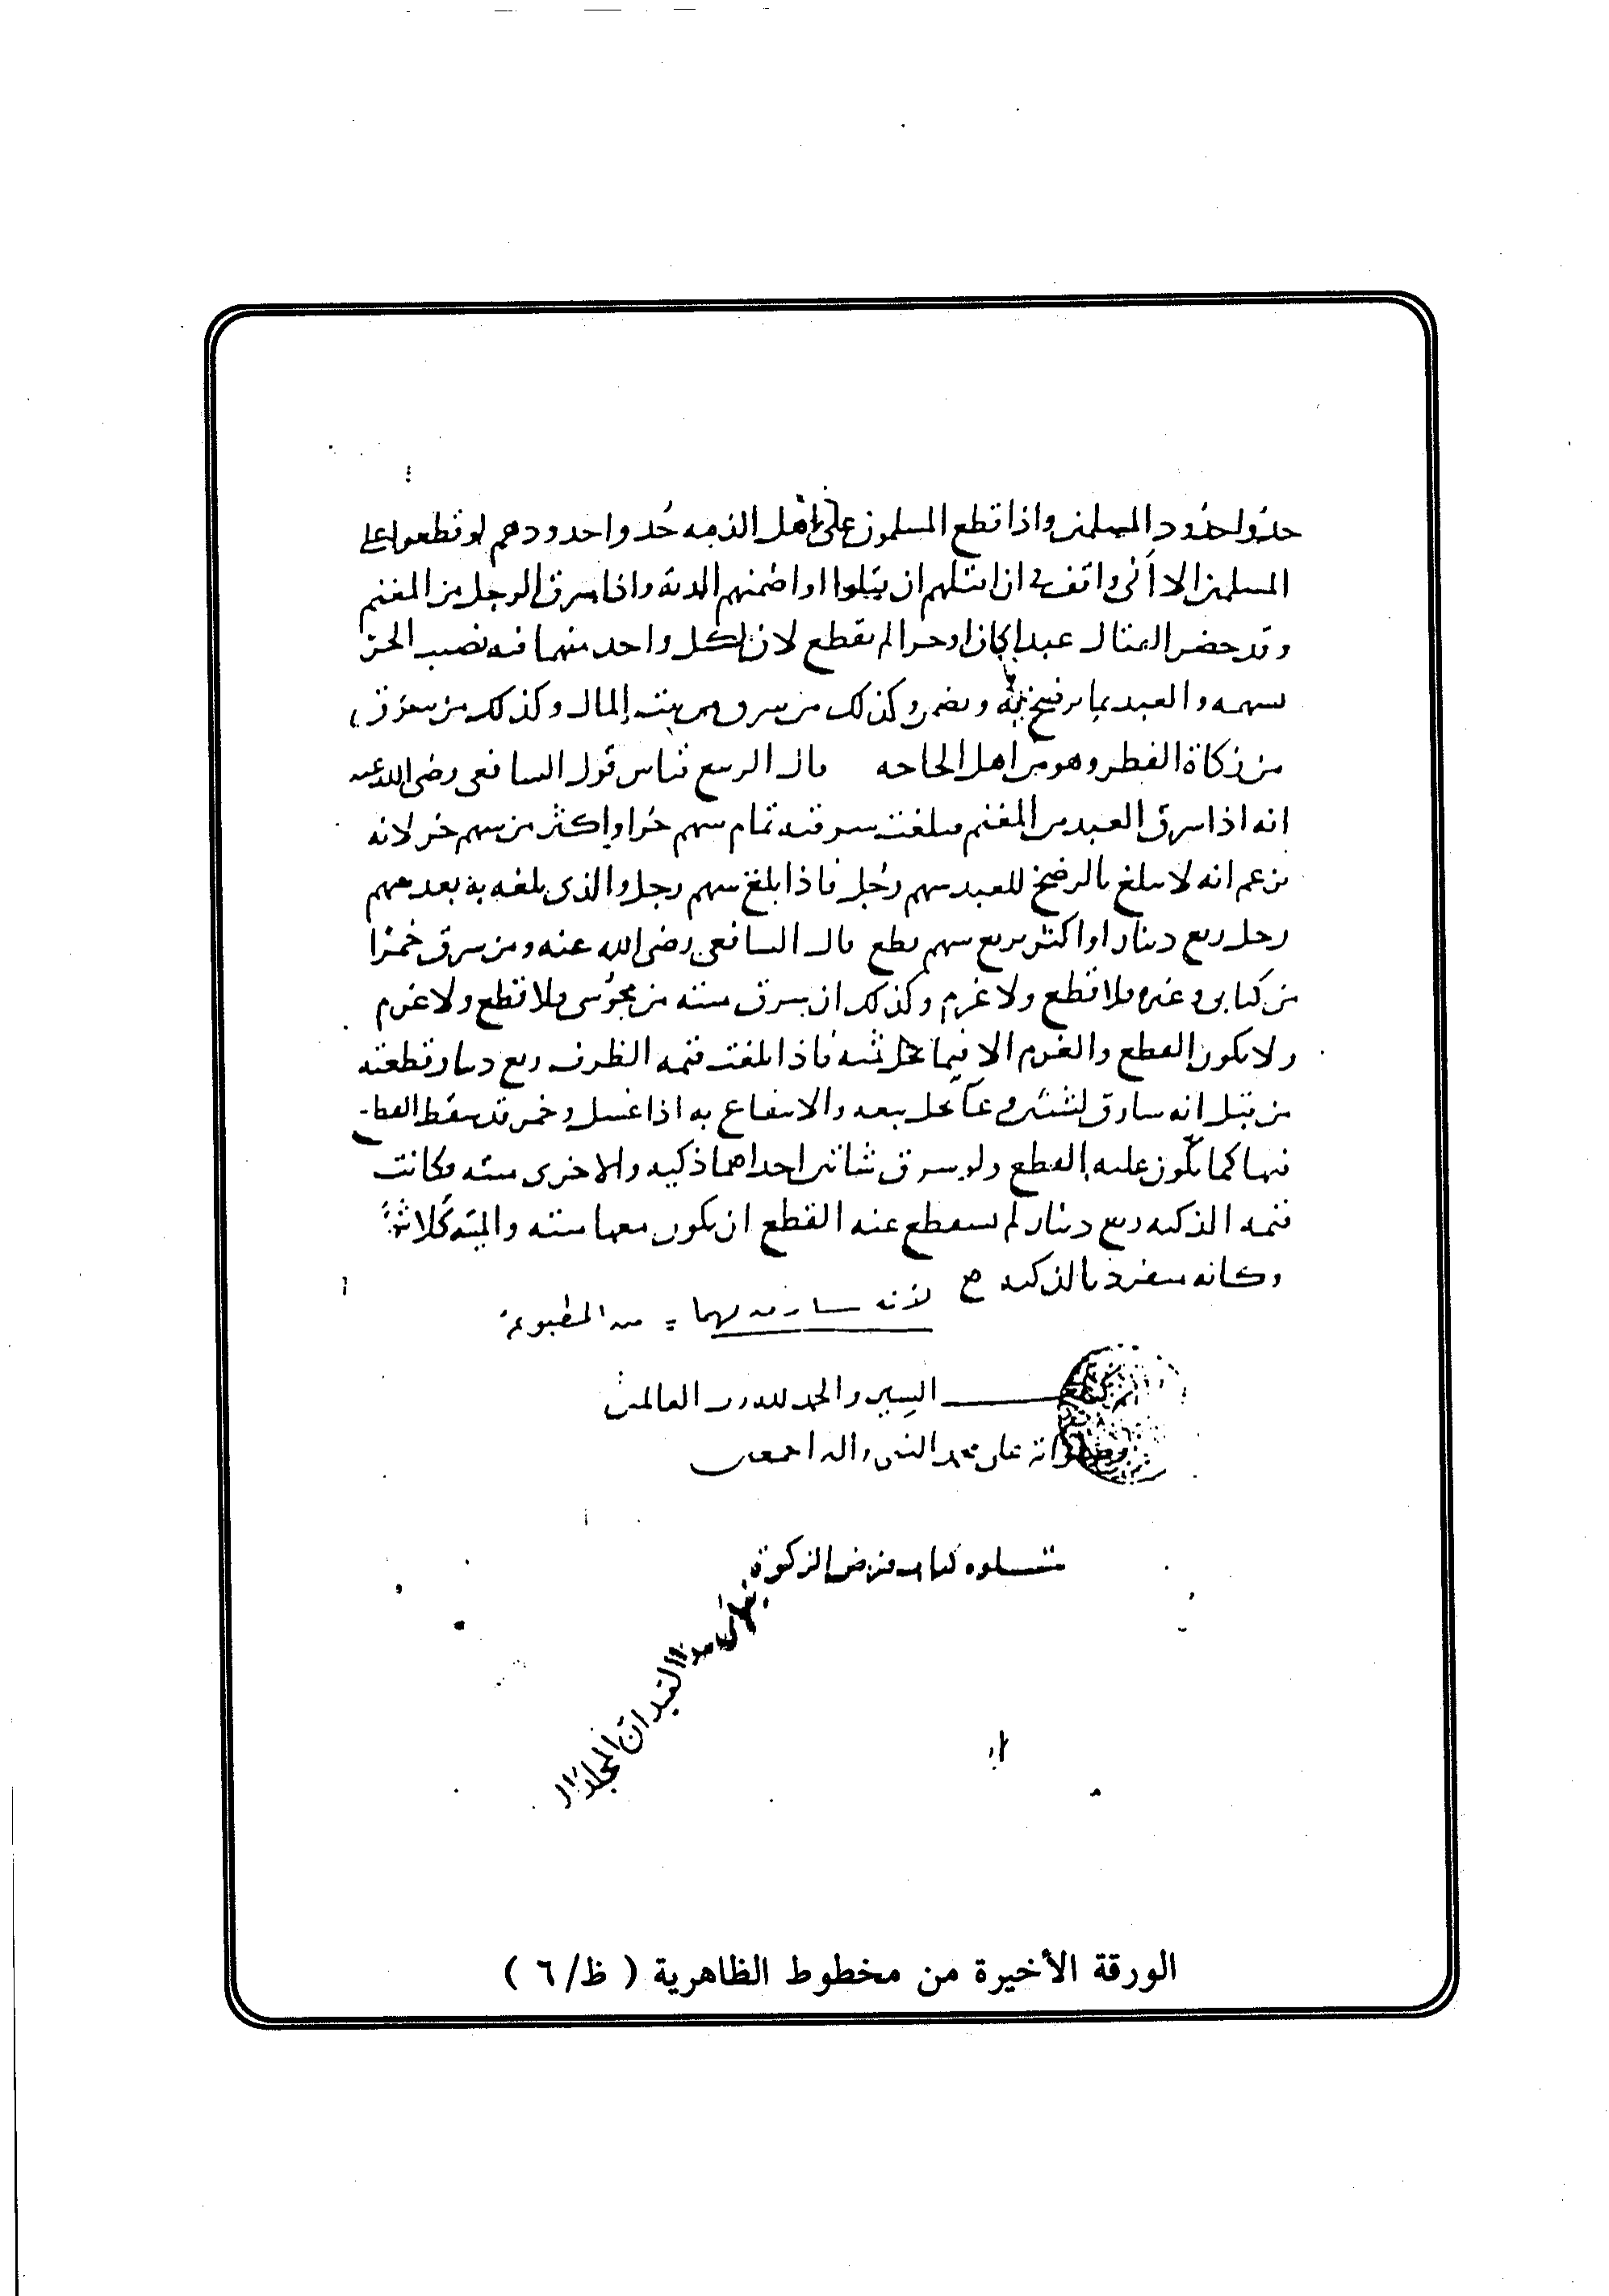 حدوا حدود المسلمين واذا قطع المسلمون على اهل الذمه حدوا حدودهم لو قطعوا على
المسلمين الا اني واقف في ان اقتلهم ان قتلوا او اضمنهم الدية واذا سرق الرجل من المغنم
وقد حضر القتال عبدا كان او حرا لم يقطع لان لكل واحد منهما فيه نصيب الحر
بسهمه والعبد بما يرضخ له ويضمن وكذلك من سرق من بيت المال وكذلك من سرق
من زكاة الفطر وهو من اهل الحاجه قال الربيع قياس قول الشافعي رضي الله عنه
انه اذا سرق العبد من المغنم فبلغت سرقته تمام سهم حر او اكثر من سهم حر لانه
يزعم انه لا يبلغ بالرضخ للعبد سهم رجل فاذا بلغ سهم رجل والذي بلغه به بعد سهم
رجل ربع دينار او اكثر من ربع سهم قطع قال الشافعي رضي الله عنه ومن سرق خمرا
من كتابي وغيره فلا قطع ولا غرم وكذلك ان سرق ميته من مجوسي فلا قطع ولا غرم
ولا يكون القطع والغرم الا فيما يحل ثمنه فاذا بلغت قيمه الظرف ربع دينار قطعته
من قبل انه سارق لشيئين يحل بيعه والانتفاع به اذا غسل وخمر قد سقط القطع
فيها كما يكون عليه القطع ولو سرق شاتين احداهما ذكيه والاخرى ميته وكانت
قيمه الذكيه ربع دينار لم يسقط عنه القطع ان يكون معها ميته والميته كلا شئ
وكانه منفرد بالذكيه
لأنه سارق لهما = من المطبوعة
السير والحمد لله رب العالمين
وصلواته على محمد النبي واله اجمعين
يتلوه كتاب فرض الزكوة
الورقة الأخيرة من مخطوط الظاهرية ( ظ/٦ )